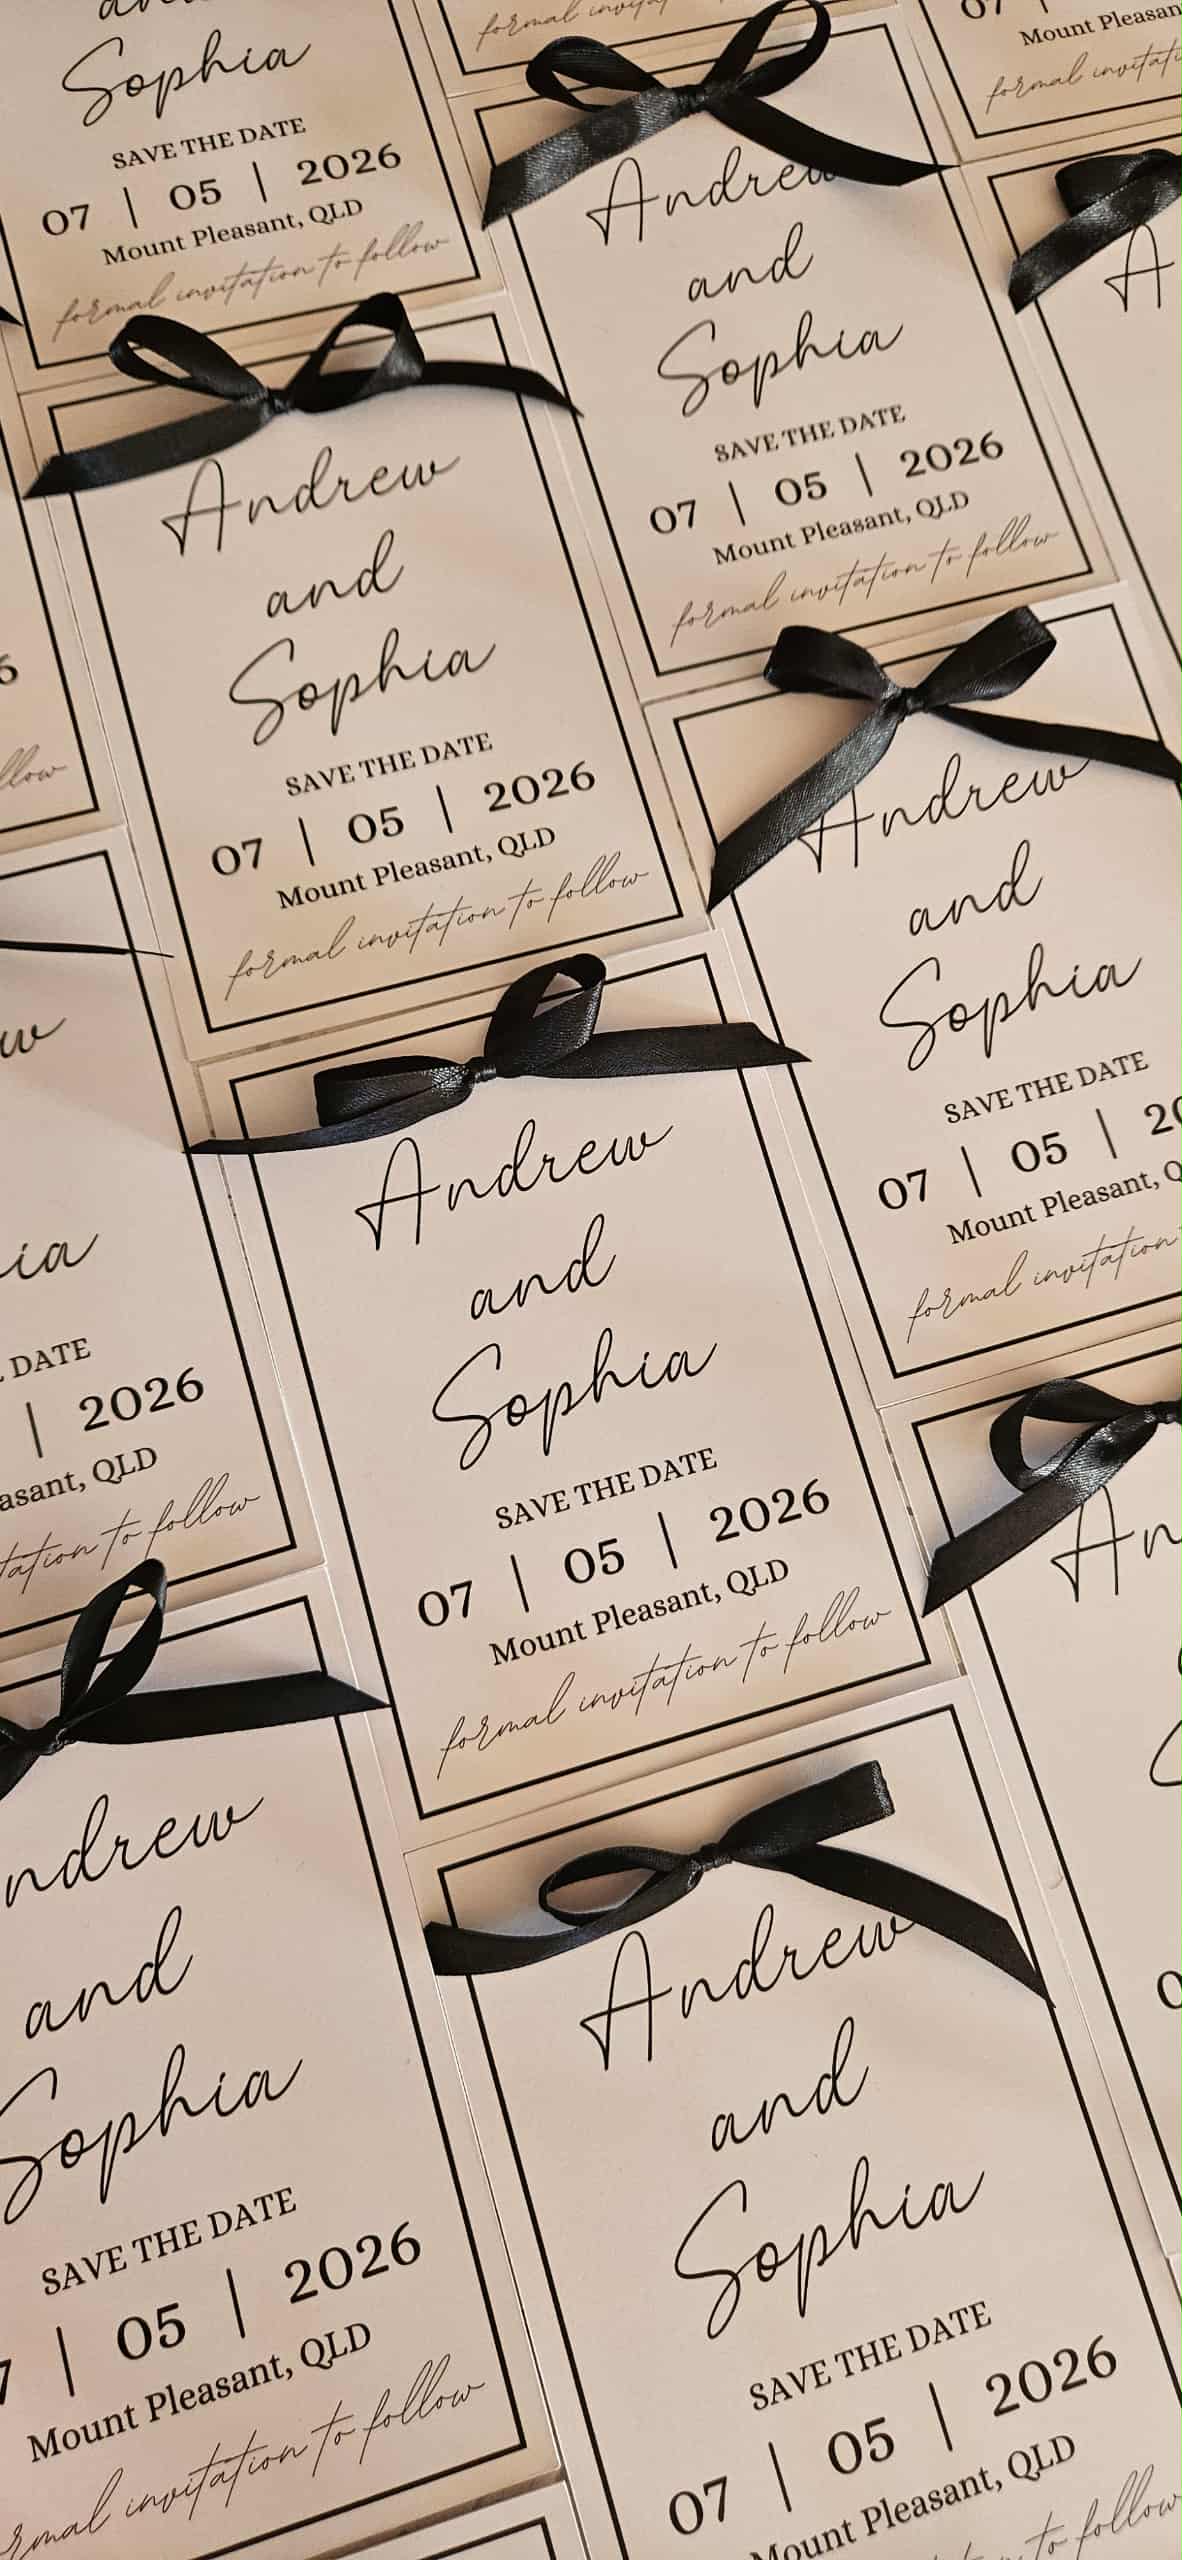 and
Sophia
SAVE THE DATE
07 | 05 | 2026
Mount Pleasant, QLD
formal invitation to follow
formal invitation to
07 |
Mount Pleasan
formal invitati
Andrew
and
Sophia
SAVE THE DATE
07 | 05 | 2026
Mount Pleasant, QLD
formal invitation to follow
A
Andrew
and
Sophia
SAVE THE DATE
07 | 05 | 2026
Mount Pleasant, QLD
formal invitation to follow
6
llow
Andrew
and
Sophia
SAVE THE DATE
07 | 05 | 20
Mount Pleasant, Q
formal invitation
ew
hia
DATE
| 2026
asant, QLD
tation to follow
Andrew
and
Sophia
SAVE THE DATE
07 | 05 | 2026
Mount Pleasant, QLD
formal invitation to follow
An
ndrew
and
Sophia
SAVE THE DATE
7 | 05 | 2026
Mount Pleasant, QLD
rmal invitation to follow
Andrew
and
Sophia
SAVE THE DATE
07 | 05 | 2026
Mount Pleasant, QLD
to follow